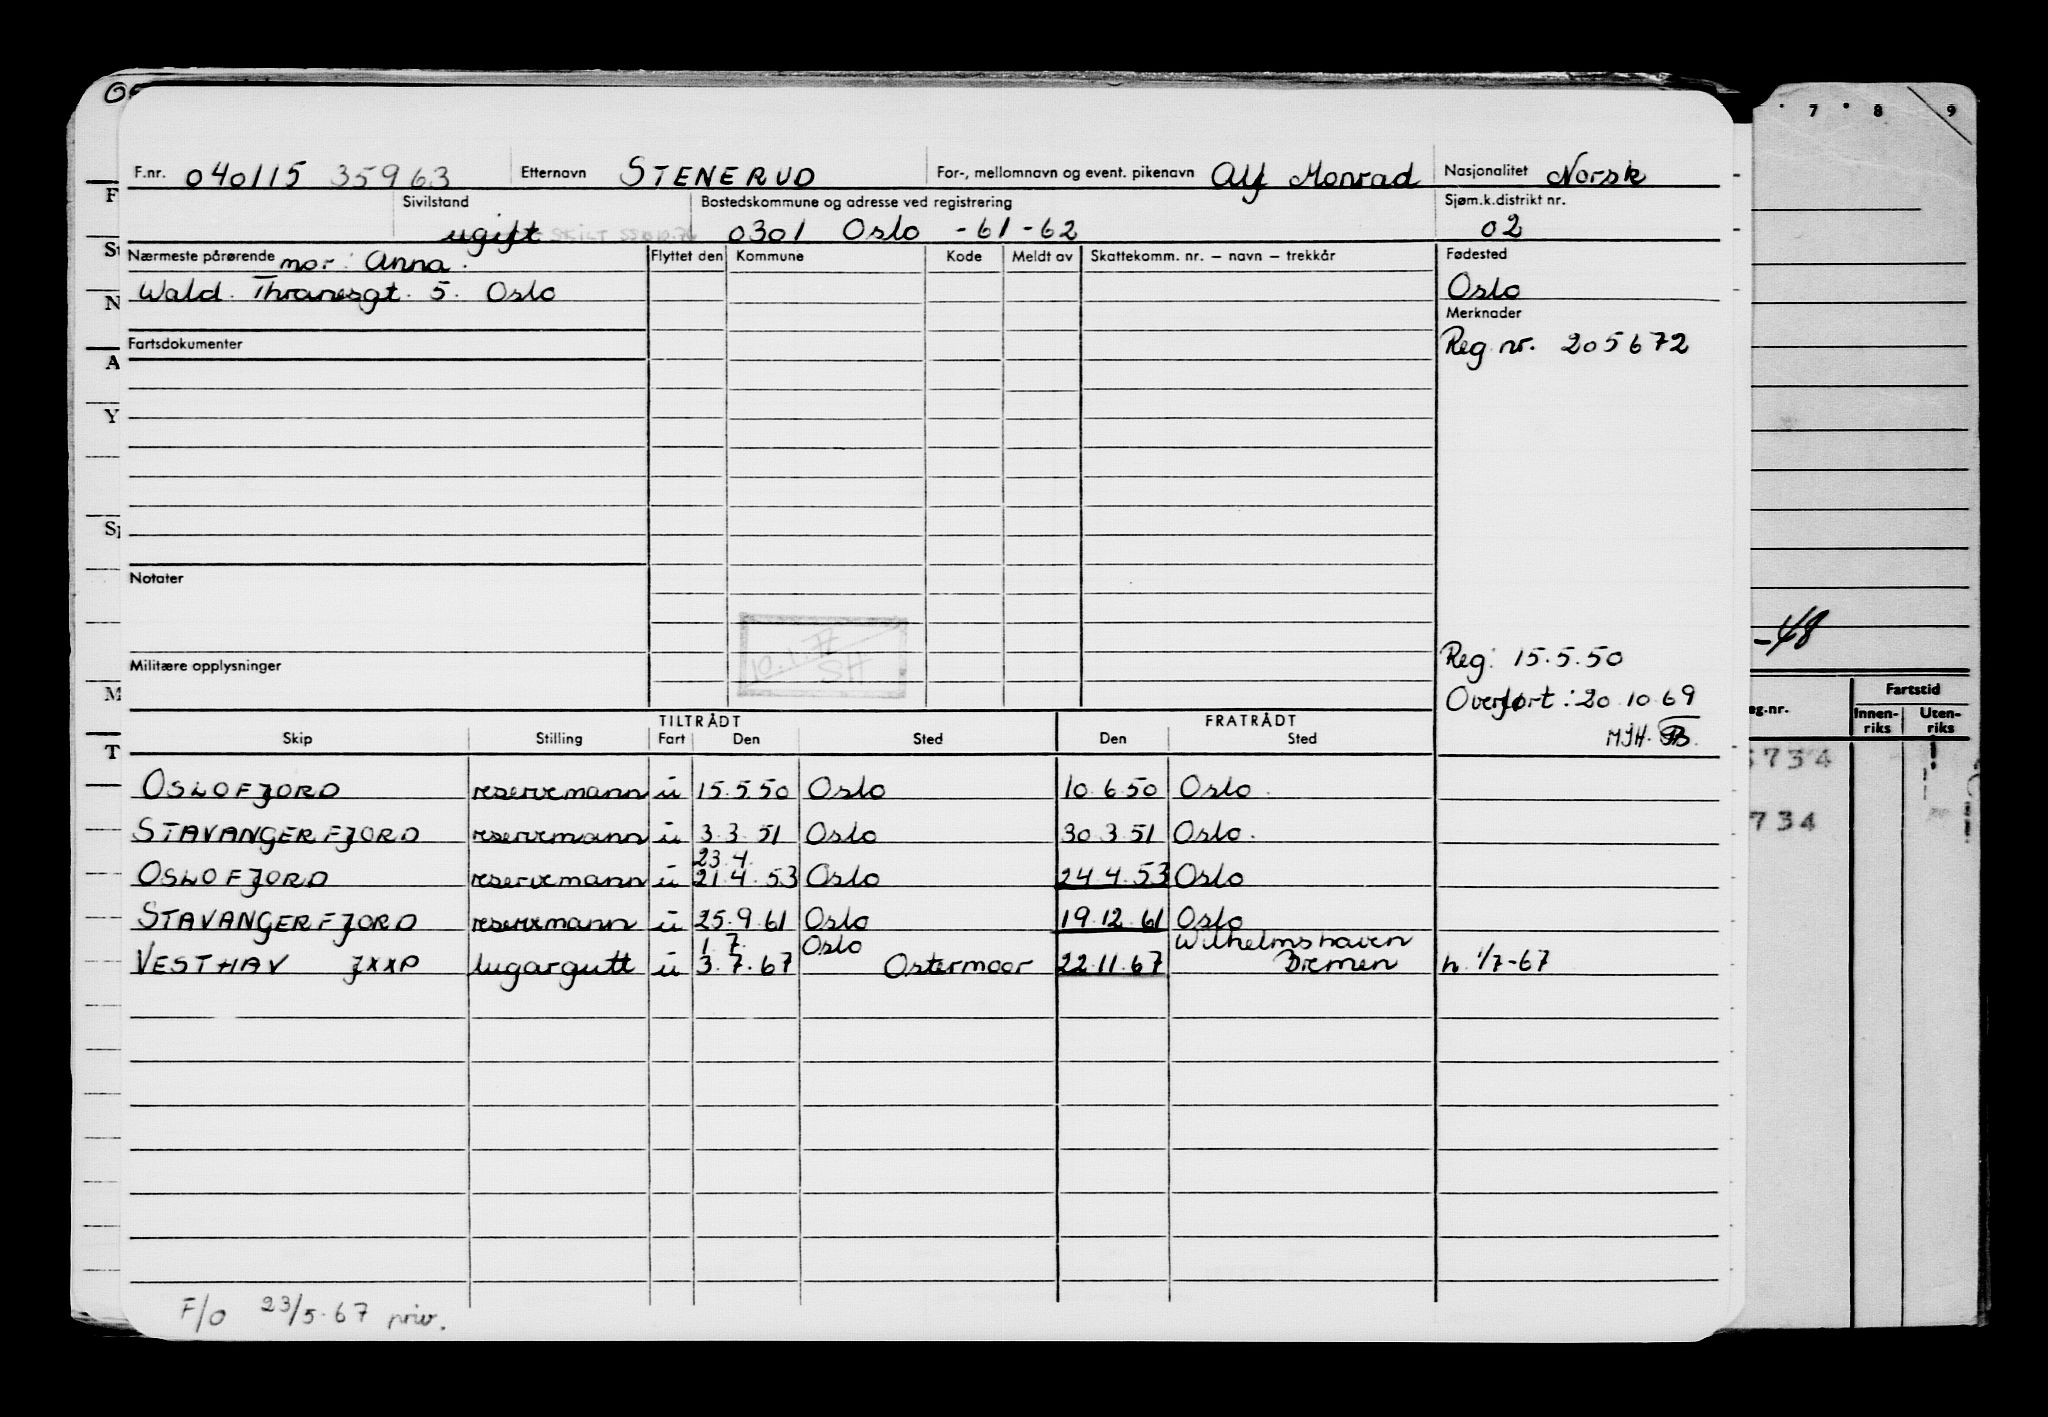 F.nr. 040115 35963 Etternavn STENERUD For-, mellomnavn og event. pikenavn Alf Monrad Nasjonalitet Norsk
Sivilstand Bostedskommune og adresse ved registrering Sjøm.k.distrikt nr.
ugift 0301 Oslo -61-62 02
Nærmeste pårørende mor: Anna. Flyttet den Kommune Kode Meldt av Skattekomm. nr. – navn – trekkår Fødested
Wald. Thranesgt. 5. Oslo Oslo
Merknader
Fartsdokumenter Reg. nr. 205672
Notater
10.1.77
SH
Militære opplysninger Reg: 15.5.50
Overført: 20.10.69
MJH.
TILTRÅDT FRATRÅDT
Skip Stilling Fart Den Sted Den Sted
OSLOFJORD reservemann u 15.5.50 Oslo 10.6.50 Oslo.
STAVANGERFJORD reservemann u 3.3.51 Oslo 30.3.51 Oslo.
23.4.
OSLOFJORD reservemann u 21.4.53 Oslo 24.4.53 Oslo
STAVANGERFJORD reservemann u 25.9.61 Oslo 19.12.61 Oslo
1.7. Oslo Wilhelmshaven
VESTHAV JXXP lugargutt u 3.7.67 Ostermoor 22.11.67 Bremen h. 1/7-67
F/O 23/5.67 priv.
7 8 9
-48
Fartstid
eg.nr. Innen-riks Uten-riks
734
734
F
N
A
Y
M
T